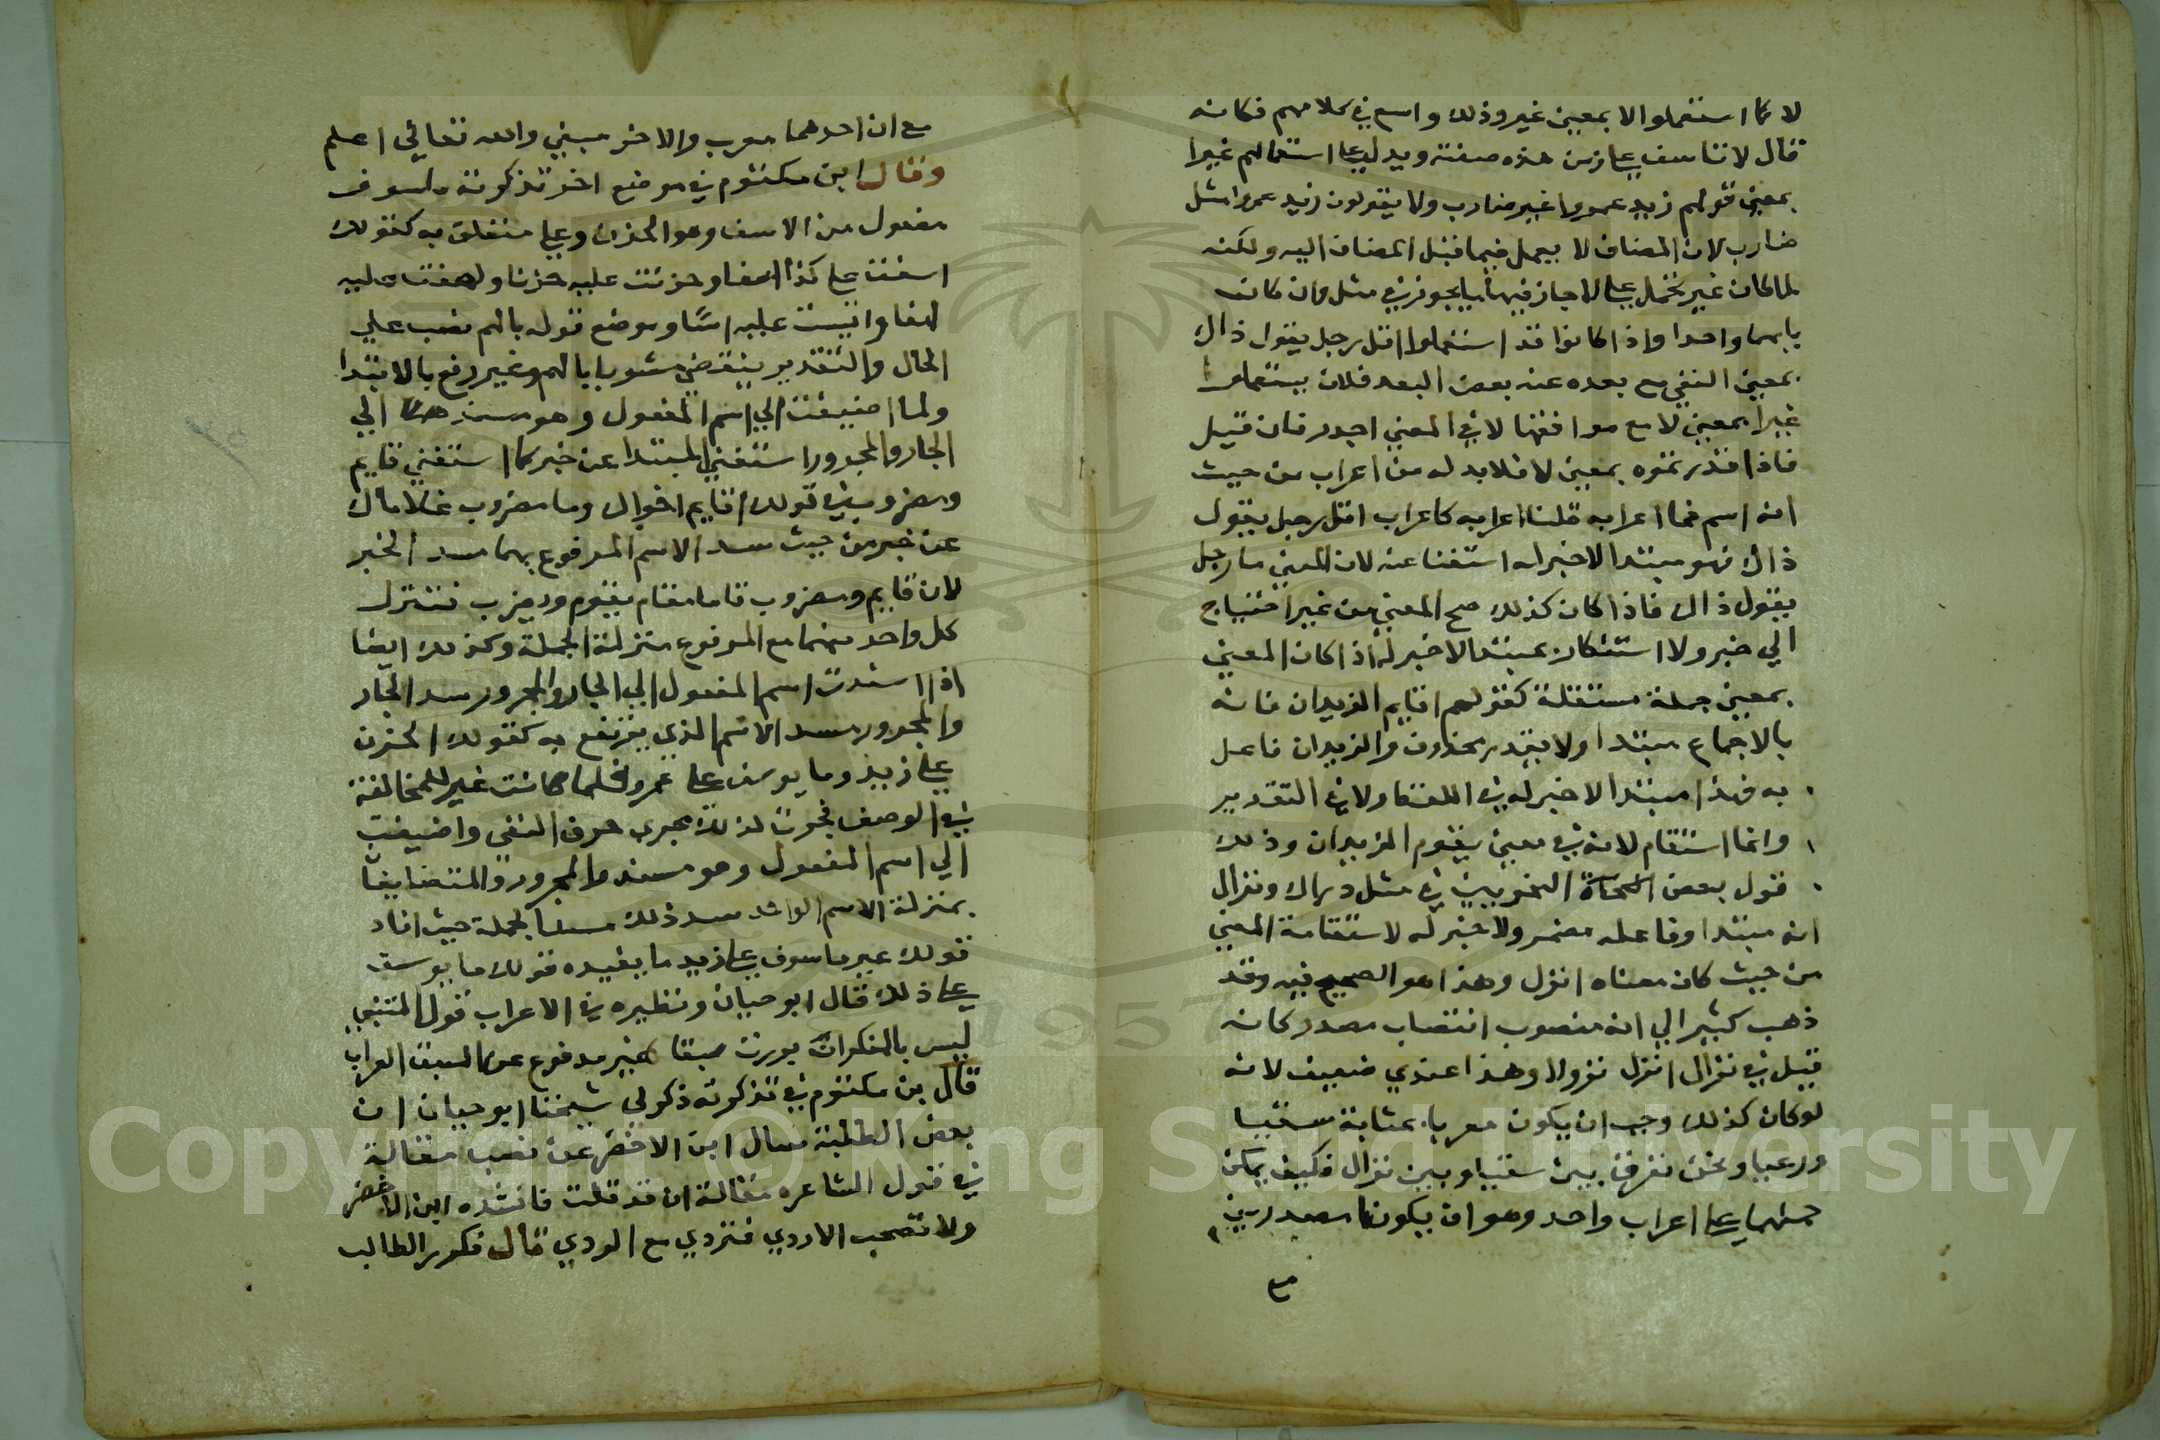 لا كما استعملوا الا بمعنى غير وذلك واسع في كلامهم فكانه
قال لا تاسف على زمن هذه صفته ويدل على استعمالهم غيرا
بمعنى قولهم زيد عمروا غير ضارب ولا يقولون زيد عمروا مثل
ضارب لان المضاف لا يعمل فيما قبل المضاف اليه ولكنه
لما كان غير تحمل على لا جاز فيها ما لا يجوز في مثل وان كان
بابهما واحدا واذا كانوا قد استعملوا اقل رجل يقول ذاك
بمعنى النفي مع بعده عنه بعض البعد فلان يستعملوا
غيرا بمعنى لا مع موافقتها لا في المعنى اجدر فان قيل
فاذا قدرتموه بمعنى لا فلا بد له من اعراب من حيث
انه اسم فما اعرابه قلنا اعرابه كاعراب اقل رجل يقول
ذاك فهو مبتدا لا خبر له استغنا عنه لان المعنى ما رجل
يقول ذاك فاذا كان كذلك صح المعنى من غير احتياج
الي خبر ولا استنكار بمبتدا لا خبر له اذا كان المعنى
بمعنى جملة مستقلة كقولهم اقايم الزيدان فانه
بالاجماع مبتدا ولا يقدر محذوف والزيدان فاعل
به فهذا مبتدا لا خبر له في اللفظ ولا في التقدير
وانما استقام لانه في معنى يقوم الزيدان وذلك
قول بعض النحاة النحويين في مثل دراك ونزال
انه مبتدا وفاعله مضمر ولا خبر له لاستقامة المعنى
من حيث كان معناه انزل وهذا هو الصحيح فيه وقد
ذهب كثير الي انه منصوب انتصاب مصدر كانه
قيل في نزال انزل نزولا وهذا عندي ضعيف لانه
لو كان كذلك وجب ان يكون معربا بمثابة سقيا
ورعيا ونحن نفرق بين سقيا وبين نزال فكيف يمكن
حملهما على اعراب واحد وهو ان يكونا مصدرين
مع ان احدهما معرب والاخر مبني والله تعالى اعلم
وقال ابن مكتوم في موضع اخر تذكرته ماسوف
مفعول من الاسف وهو الحزن وعلى متعلق به كقولك
اسفت على كذا اسفا وحزنت عليه حزنا ولهفت عليه
لهفا واسيت عليه اسًا وموضع قوله بالهم نصب على
الحال والتقدير ينقضي مشوبا بالهم وغير رفع بالابتدا
ولما اضيفت الي اسم المفعول وهو مسند الي
الجار والمجرور استغنى المبتدا عن خبر كما استغنى قايم
ومضروب في قولك اقايم اخواك وما مضروب غلاماك
عن خبر من حيث سد الاسم المرفوع بهما مسد الخبر
لان قايم ومضروب قاما مقام يقوم ويضرب فتنزل
كل واحد منهما مع المرفوع منزلة الجملة وكذلك ايضا
اذا اسندت اسم المفعول الي الجار والمجرور سد الجار
والمجرور مسد الاسم الذي يرتفع به كقولك الحزن
على زيد وما يوسف على عمرو فلما كانت غير للمخالفة
في الوصف فجرت لذلك مجرى حرف النفي واضيفت
الي اسم المفعول وهو مسند والمجرور والمتضايفا
بمنزلة الاسم الواحد سد ذلك مسد الجملة حيث افاد
قولك غير ماسوف على زيد ما يفيده قولك ما يوسف
على ذلك قال ابو حيان ونظيره في الاعراب قول المتنبي
ليس بالمنكران برزت سبقا غير مدفوع عن السبق العراب
قال بن مكتوم في تذكرته ذكر لي شيخنا ابو حيان ان
بعض الطلبة سال ابن الاخضر عن نصب مقالة
في قول الشاعر مقالة ان قد قلت فانشده ابن الاخضر
ولا تصحب الاردي فتردي مع الردي قال فكرر الطالب